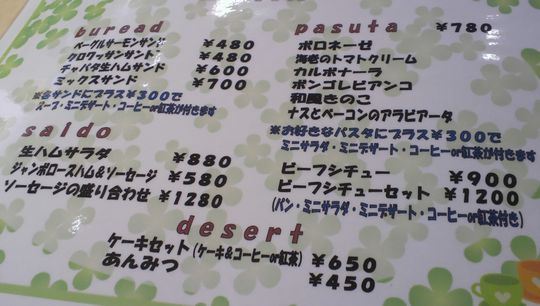 buread
ベーグルサーモンサンド ￥480
クロワッサンサンド ￥480
チャバタ生ハムサンド ￥600
ミックスサンド ￥700
※各サンドにプラス￥300で
スープ・ミニデザート・コーヒーor紅茶が付きます
saido
生ハムサラダ ￥880
ジャンボロースハム＆ソーセージ ￥580
ソーセージの盛り合わせ ￥1280
pasuta ￥780
ボロネーゼ
海老のトマトクリーム
カルボナーラ
ボンゴレビアンコ
和風きのこ
ナスとベーコンのアラビアータ
※お好きなパスタにプラス￥300で
ミニサラダ・ミニデザート・コーヒーor紅茶が付きます
ビーフシチュー ￥900
ビーフシチューセット ￥1200
(パン・ミニサラダ・ミニデザート・コーヒーor紅茶付き)
desert
ケーキセット(ケーキ＆コーヒーor紅茶) ￥650
あんみつ ￥450